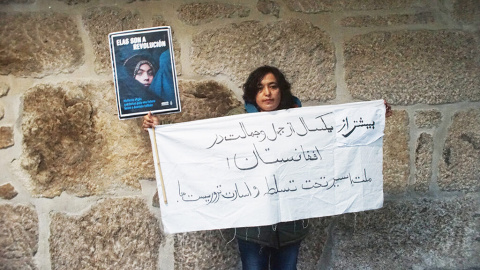 ELAS SON A REVOLUCIÓN
بیشتر از یکسال از جهل و جهالت در
افغانستان!
ملت اسیر تحت تسلط و اسارت تروریست ها!